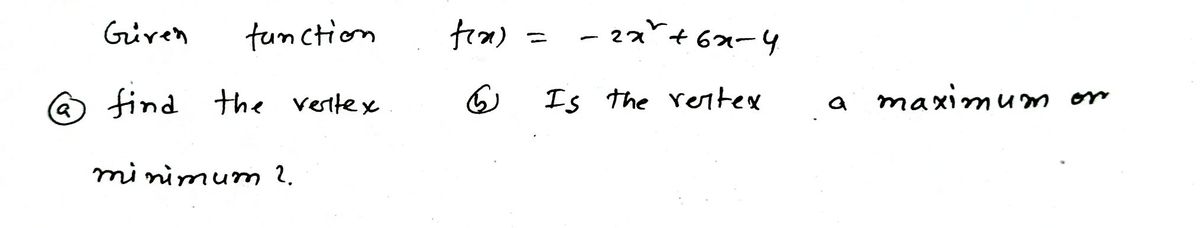 Given function f(x) = - 2x² + 6x - 4
ⓐ find the vertex ⓑ Is the vertex a maximum or
minimum ?.